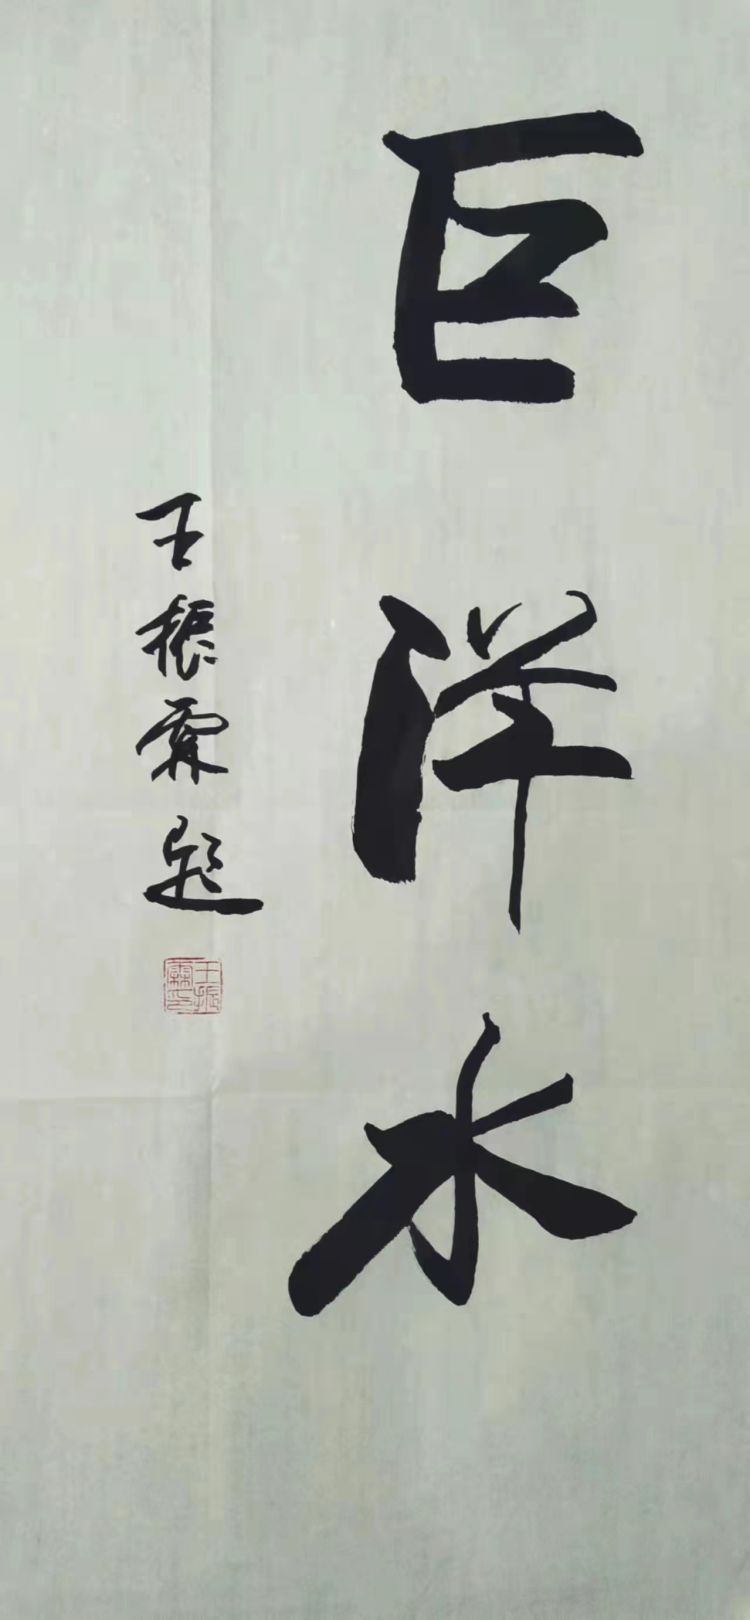 巨洋水
王振霖题
王振霖印